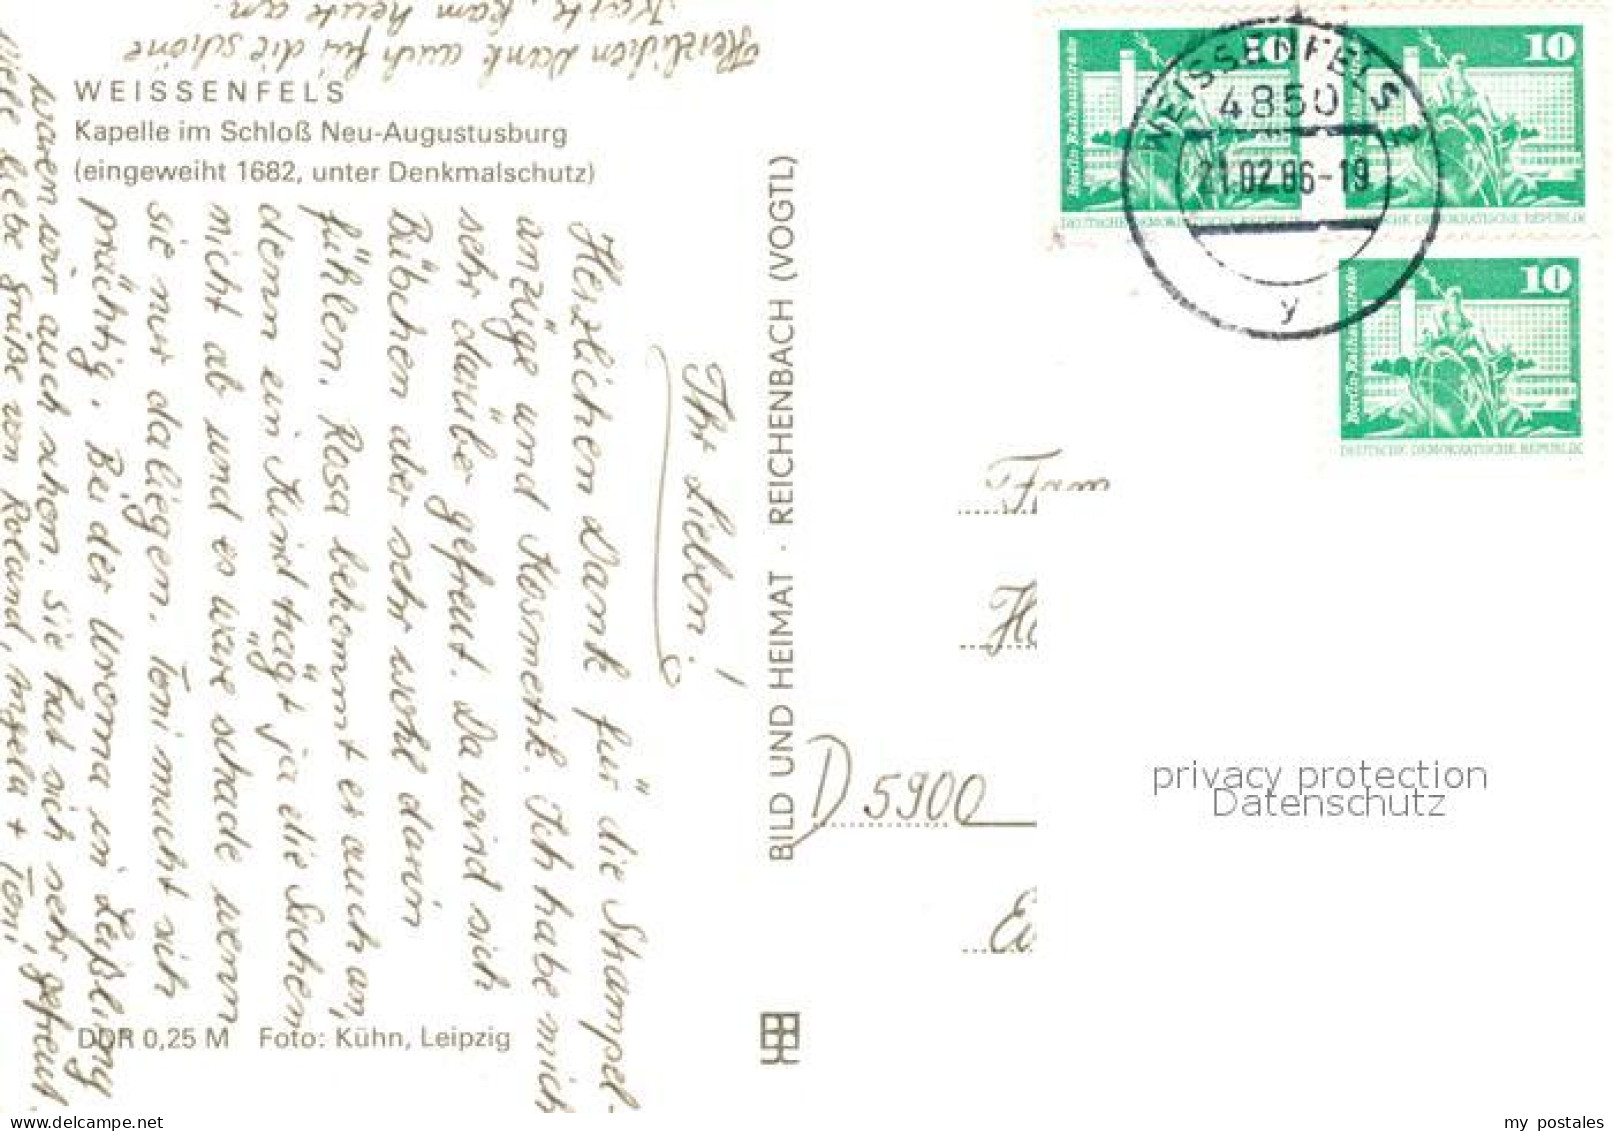 WEISSENFELS
Kapelle im Schloß Neu-Augustusburg
(eingeweiht 1682, unter Denkmalschutz)
Ihr Lieben!
Herzlichen Dank für die Strampel-
anzüge und Kosmetik. Ich habe mich
sehr darüber gefreut. Da wird sich
Bübchen aber sehr wohl darin
fühlen. Rosa bekommt er auch an,
denn ein Kind trägt ja die Sachen
nicht ab und es wäre schade wenn
sie nur daliegen. Toni macht sich
prächtig. Bei der Uroma in Leißling
waren wir auch schon. Sie hat sich sehr gefreut.
Viele liebe Grüße von Roland, Angela + Toni
Herzlichen Dank auch für die schöne
Karte, kam heute an.
DDR 0,25 M Foto: Kühn, Leipzig
BILD UND HEIMAT · REICHENBACH (VOGTL)
Berlin Rathausstraße
10
DEUTSCHE DEMOKRATISCHE REPUBLIK
10
DEUTSCHE DEMOKRATISCHE REPUBLIK
Berlin Rathausstraße
10
DEUTSCHE DEMOKRATISCHE REPUBLIK
WEISSENFELS 2
4850
21.02.86-19
y
Fam
D 5900
privacy protection
Datenschutz
delcampe.net
my postales